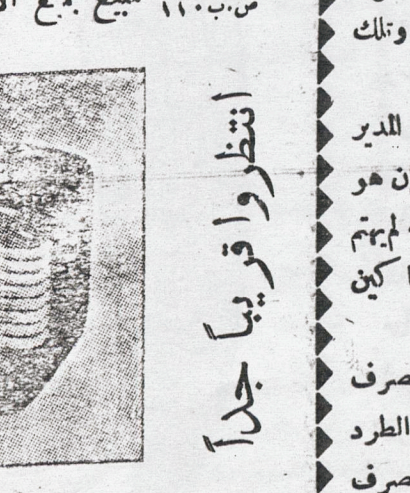 ص.ب. ١١٠
انتظروا قريباً جداً
وتلك
المدير
ن هو
لم يهتم
كين
صرف
الطرد
صرف